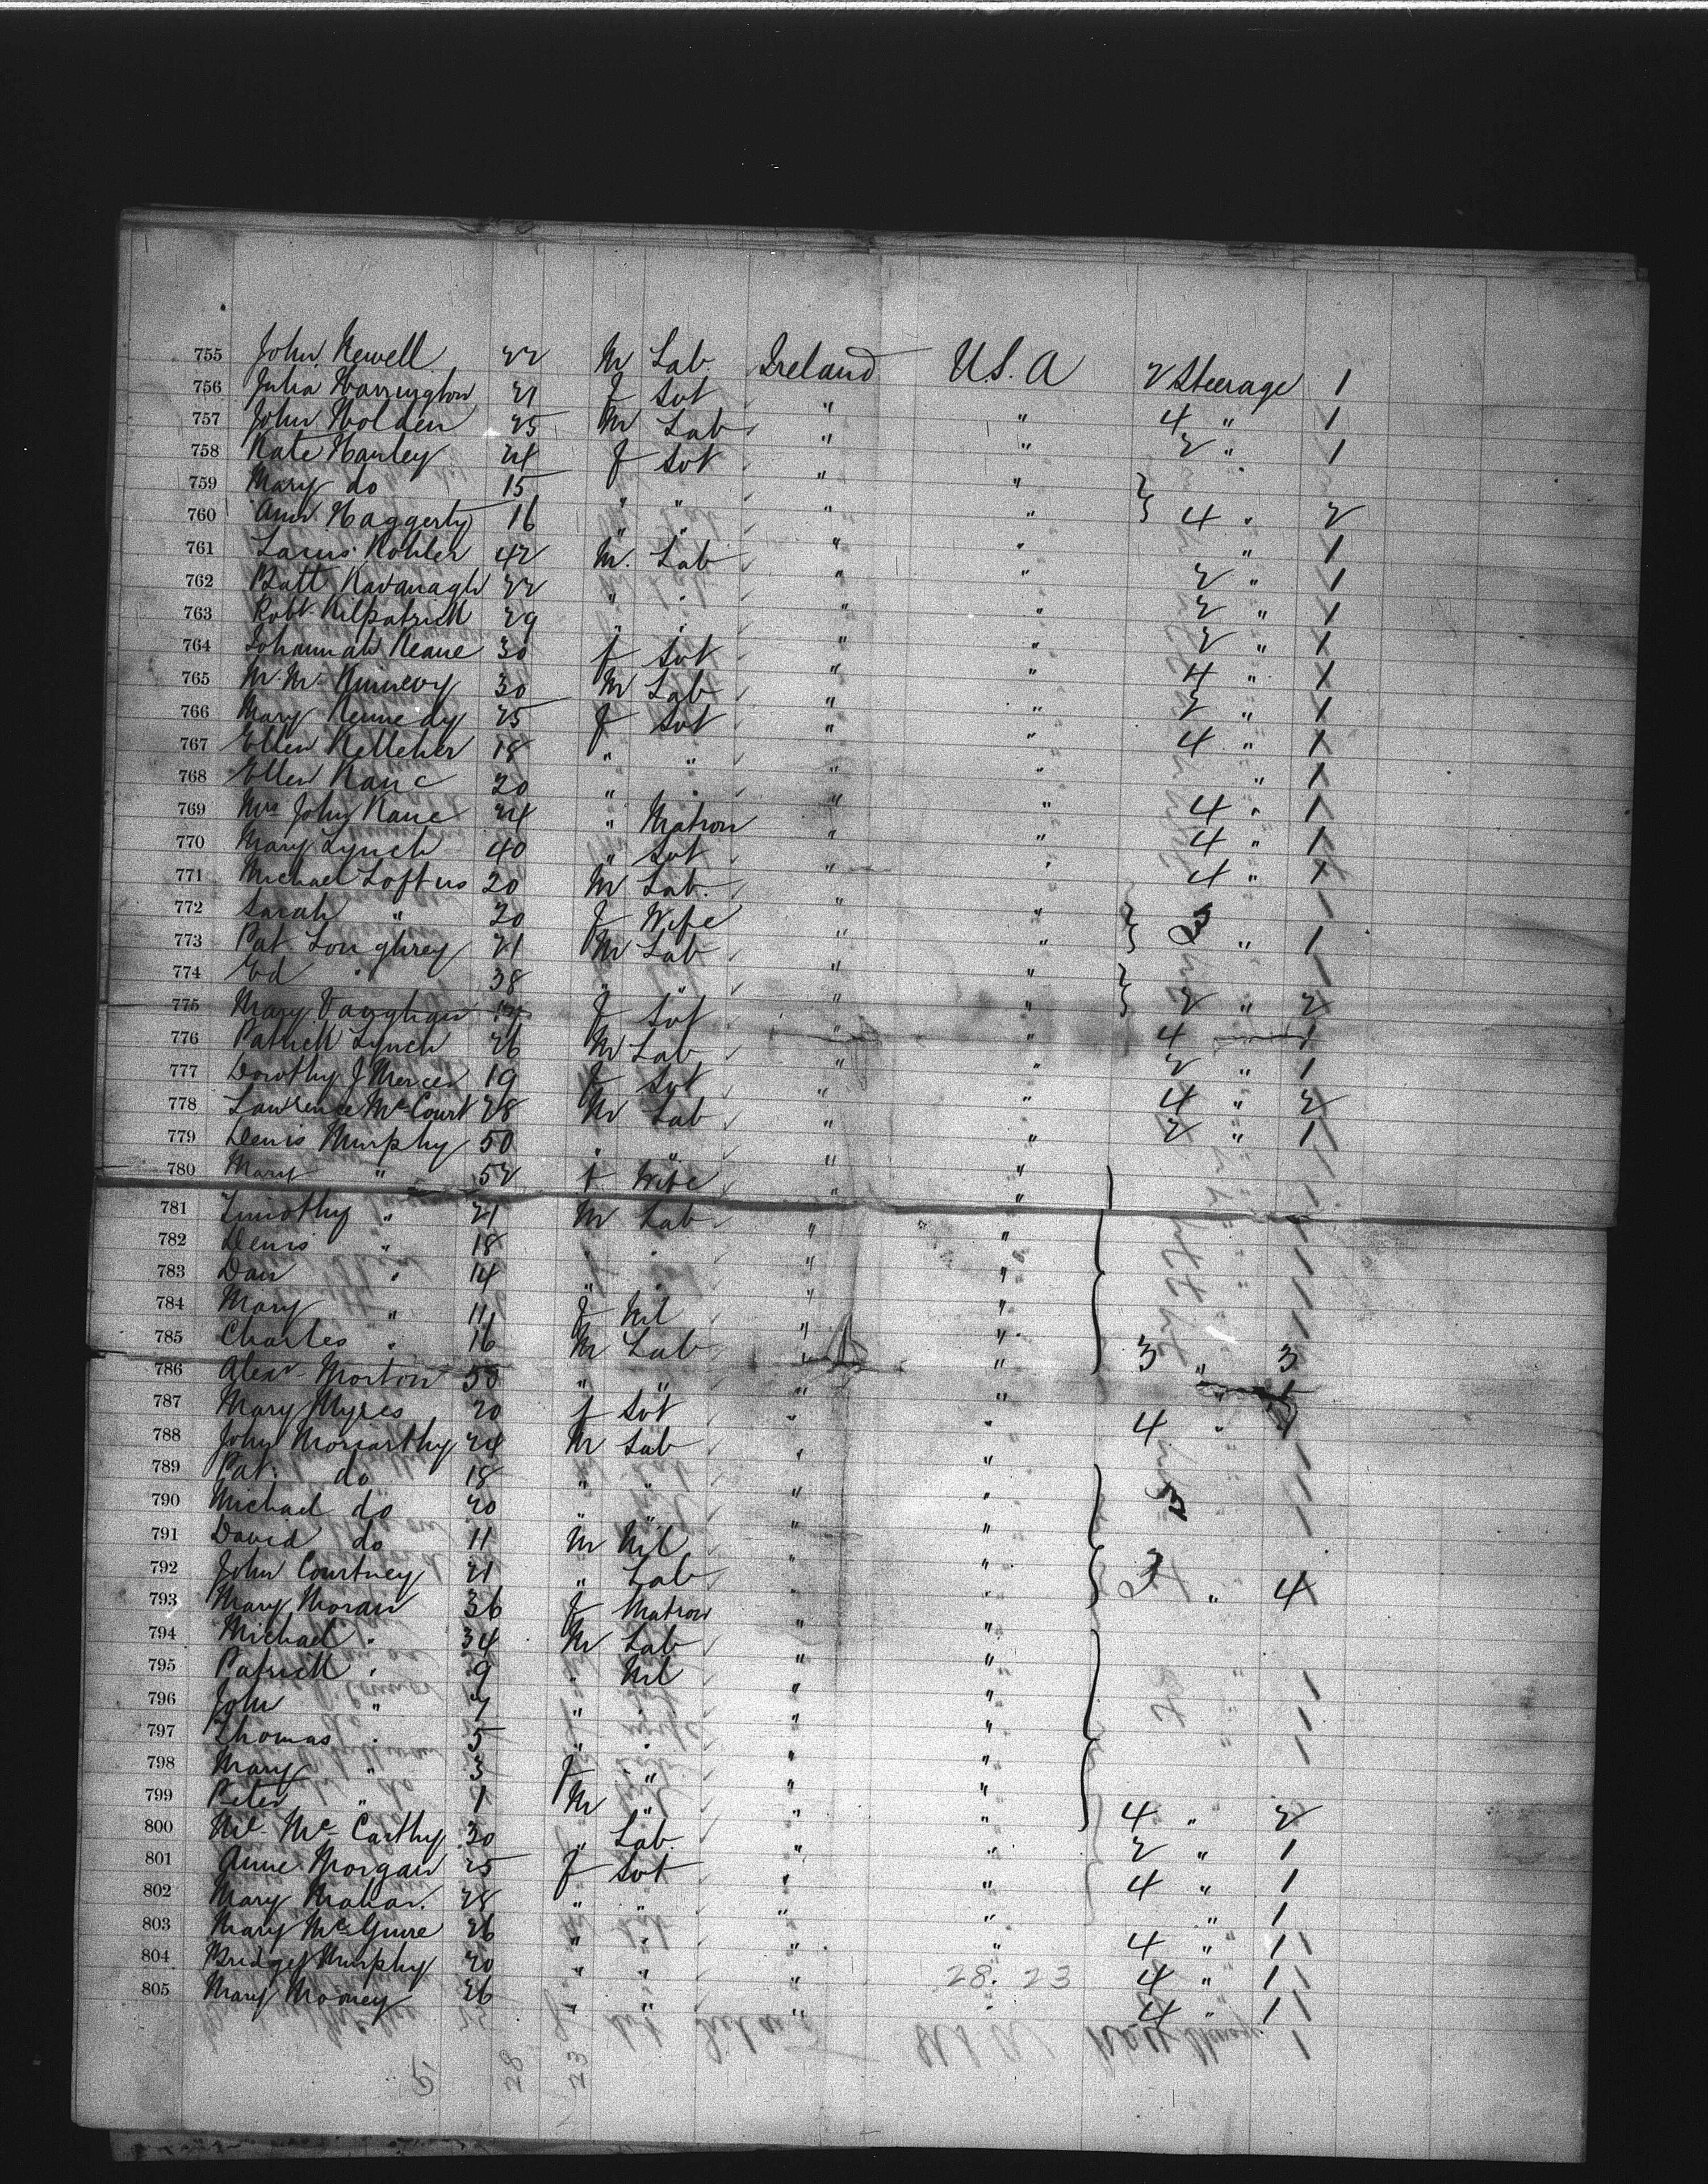 755 John Newell 22 M Lab. Ireland U.S.A 2 Steerage 1
756 Julia Harrington 21 f Svt " " 4 " 1
757 John Holden 25 M Lab " " 2 " 1
758 Kate Hanley 24 f Svt " "
759 Mary do 15 " " " " 4 " 2
760 Ann Haggerty 16 " " " " " 1
761 Kohler 42 M. Lab " " 2 " 1
762 Patt Kavanagh 22 " " " " 2 " 1
763 Robt Kilpatrick 29 " " " " 2 " 1
764 Johannah Keane 30 f Svt " " 4 " 1
765 30 M Lab " " 2 " 1
766 Mary Kennedy 25 f Svt " " 4 " 1
767 Ellen Kelleher 18 " " " " " 1
768 Ellen Kane 20 " " " " 4 " 1
769 Mrs John Kane 24 " Matron " " 4 " 1
770 Mary Lynch 40 " Svt " " 4 " 1
771 Michael Loftus 20 M Lab. " " 1
772 Sarah " 20 f Wife " " " 1
773 Pat Loughrey 21 M Lab " " 1
774 Ed " 38 " " " " 2 " 2
775 Mary Vaughan f Svt " " 4 " 1
776 Patrick Lynch 26 M Lab " " 2 " 1
777 Dorothy J Mercer 19 f Svt " " 4 " 2
778 Lawrence McCourt 28 M Lab " " 2 " 1
779 Denis Murphy 50 " " " "
780 Mary " 52 f Wife " "
781 Timothy " 21 M Lab " "
782 Denis " 18 " " " "
783 Dan " 14 " " " "
784 Mary " 11 f Nil " "
785 Charles " 16 M Lab " " 3 " 3
786 Alexr Morton 50 " " " " " 1
787 Mary Myres 20 f Svt " " 4 " 1
788 John Moriarthy 24 M Lab " "
789 Pat. do 18 " " " "
790 Michael do 20 " " " "
791 David do 11 M Nil " "
792 John Courtney 21 " Lab " " " 4
793 Mary Moran 36 f Matron " "
794 Michael " 34 M Lab " "
795 Patrick " 9 " Nil " "
796 John " 7 " " " "
797 Thomas " 5 " " " "
798 Mary " 3 f " " "
799 Peter " 1 M " " " 4 " 2
800 Ml McCarthy 30 " Lab. " " 2 " 1
801 Anne Morgan 25 f Svt " " 4 " 1
802 Mary Mahan. 28 " " " " " 1
803 Mary McGuire 26 " " " " 4 " 1
804 Bridget Murphy 20 " " " " 4 " 1
28. 23
805 Mary Mooney 26 " " " " 4 " 1